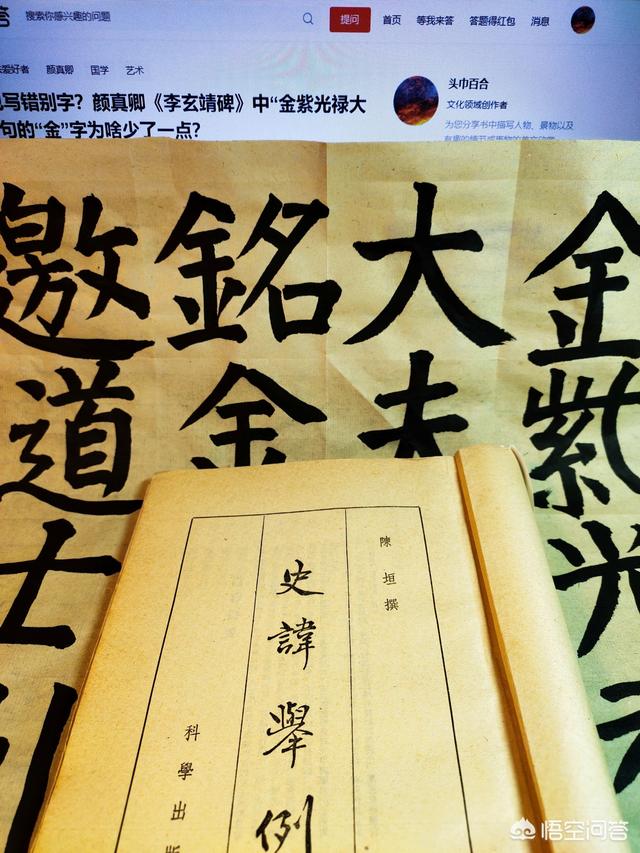 答
搜索你感兴趣的问题
提问
首页
等我来答
答题得红包
消息
爱好者
颜真卿
国学
艺术
写错别字?颜真卿《李玄靖碑》中“金紫光禄大
句的“金”字为啥少了一点?
头巾百合
文化领域创作者
为您分享书中描写人物、景物以及
金紫光
大夫
銘金
邀道士
陳垣撰
史諱舉例
科學出版
悟空问答